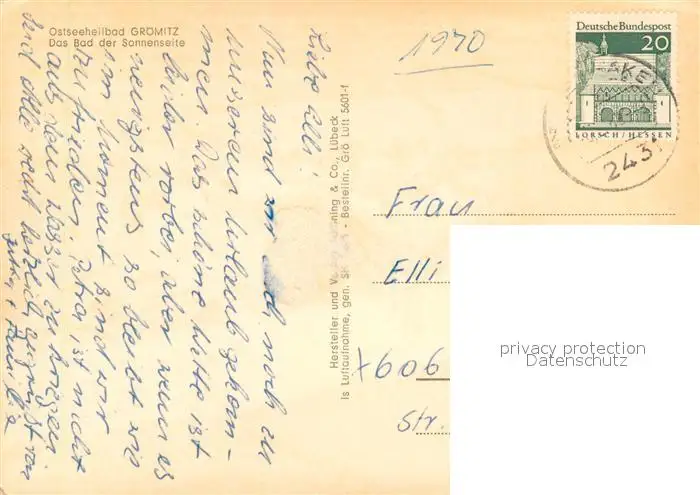 Ostseeheilbad GRÖMITZ
Das Bad der Sonnenseite
Liebe Elli!
Nun sind wir auch noch zu
unserem Urlaub gekom-
men. Das schöne Wetter ist
leider vorbei, aber wenn es
wenigstens so bleibt wie
im Moment sind wir
zufrieden. Petra ist nicht
aus dem Wasser zu kriegen.
Seid alle recht herzlich gegrüßt von
Familie
Hersteller und ning & Co., Lübeck
is Luftaufnahme, gen. SH - Bestellnr. Grö Luft 5601-f
1970
Deutsche Bundespost
20
LORSCH/HESSEN
2431
Frau
Elli
606
Str.
privacy protection
Datenschutz